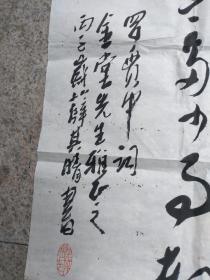 多少事
罗贯中词
金堂先生雅正之
丙子岁薛其晴书